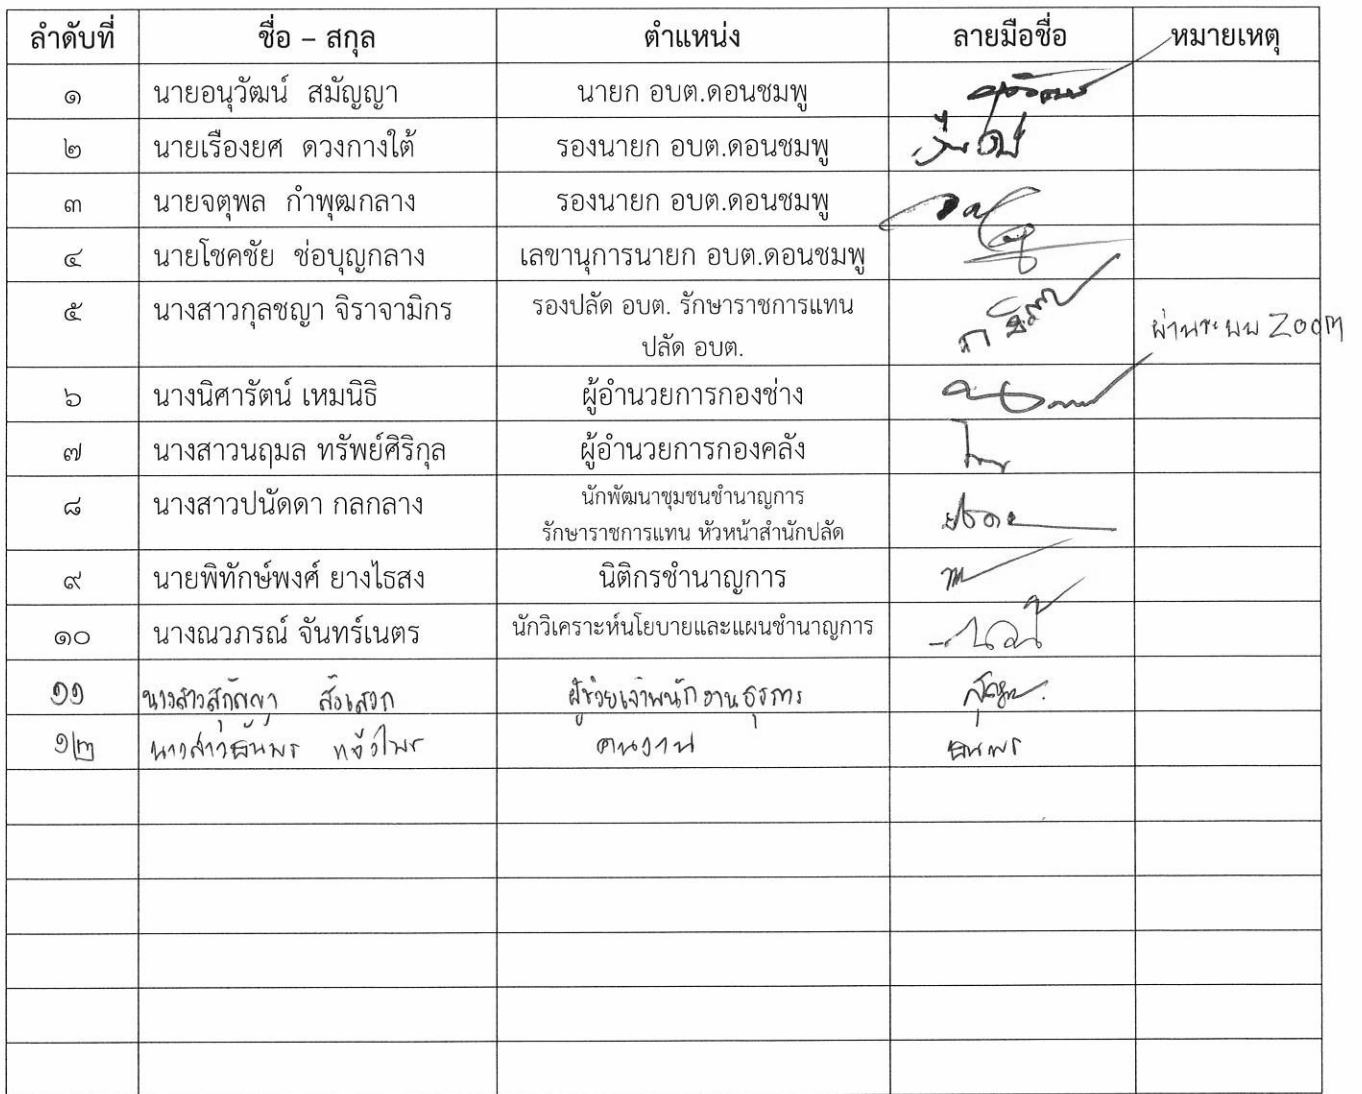 ลำดับที่ ชื่อ – สกุล ตำแหน่ง ลายมือชื่อ หมายเหตุ
๑ นายอนุวัฒน์ สมัญญา นายก อบต.ดอนชมพู
๒ นายเรืองยศ ดวงกางใต้ รองนายก อบต.ดอนชมพู
๓ นายจตุพล กำพุฒกลาง รองนายก อบต.ดอนชมพู
๔ นายโชคชัย ช่อบุญกลาง เลขานุการนายก อบต.ดอนชมพู
๕ นางสาวกุลชญา จิราจามิกร รองปลัด อบต. รักษาราชการแทน
ปลัด อบต. ผ่านระบบ Zoom
๖ นางนิศารัตน์ เหมนิธิ ผู้อำนวยการกองช่าง
๗ นางสาวนฤมล ทรัพย์ศิริกุล ผู้อำนวยการกองคลัง
๘ นางสาวปนัดดา กลกลาง นักพัฒนาชุมชนชำนาญการ
รักษาราชการแทน หัวหน้าสำนักปลัด
๙ นายพิทักษ์พงศ์ ยางไธสง นิติกรชำนาญการ
๑๐ นางณวภรณ์ จันทร์เนตร นักวิเคราะห์นโยบายและแผนชำนาญการ
๑๑ นางสาวสุกัญญา ผู้ช่วยเจ้าพนักงานธุรการ
๑๒ นางสาวธันพร คนงาน